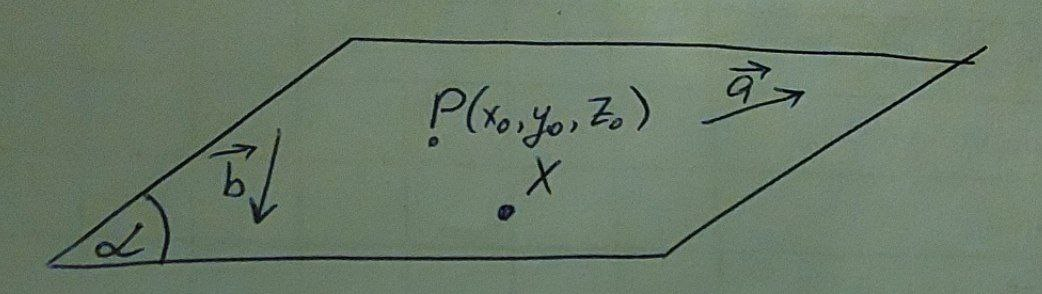 P(x₀, y₀, z₀)
a⃗
b⃗
X
α